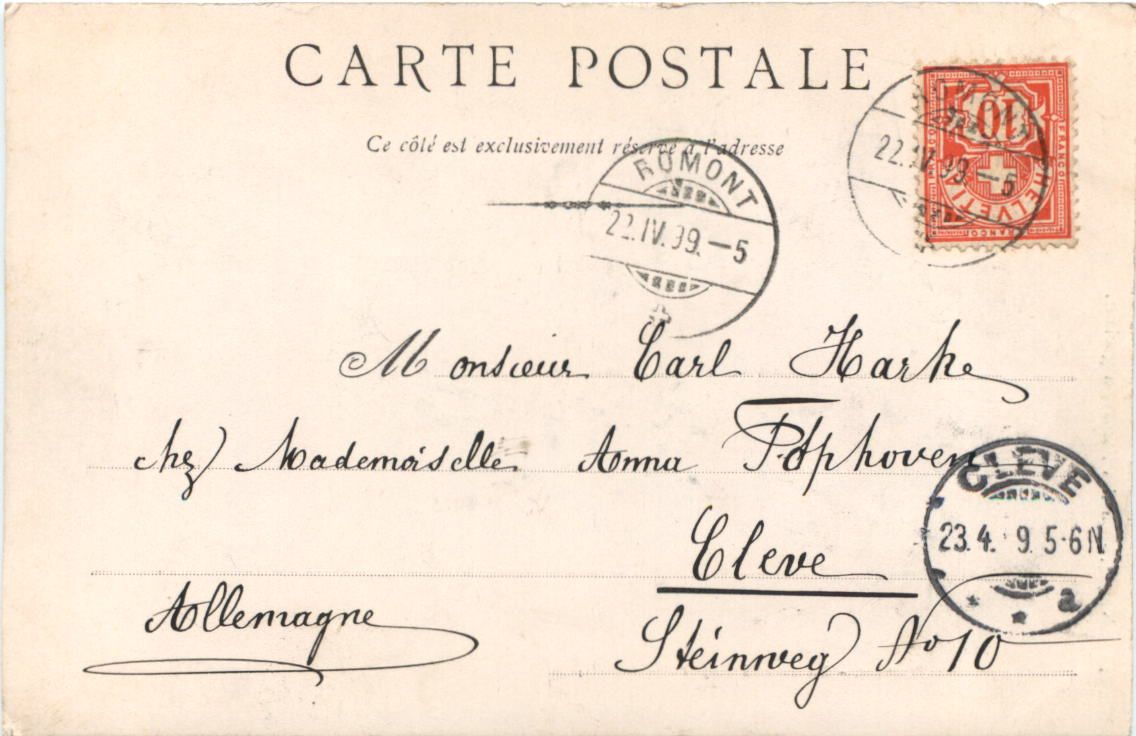 CARTE POSTALE
Ce côté est exclusivement réservé à l'adresse
ROMONT
22.IV.99.-5
ROMONT
22.IV.99-5
FRANCO
10
HELVETIA
FRANCO
Monsieur Carl Harke
chez Mademoiselle Anna Pophoven
Cleve
Allemagne
Steinweg No 10
CLEVE
23.4.9. 5-6N.
a